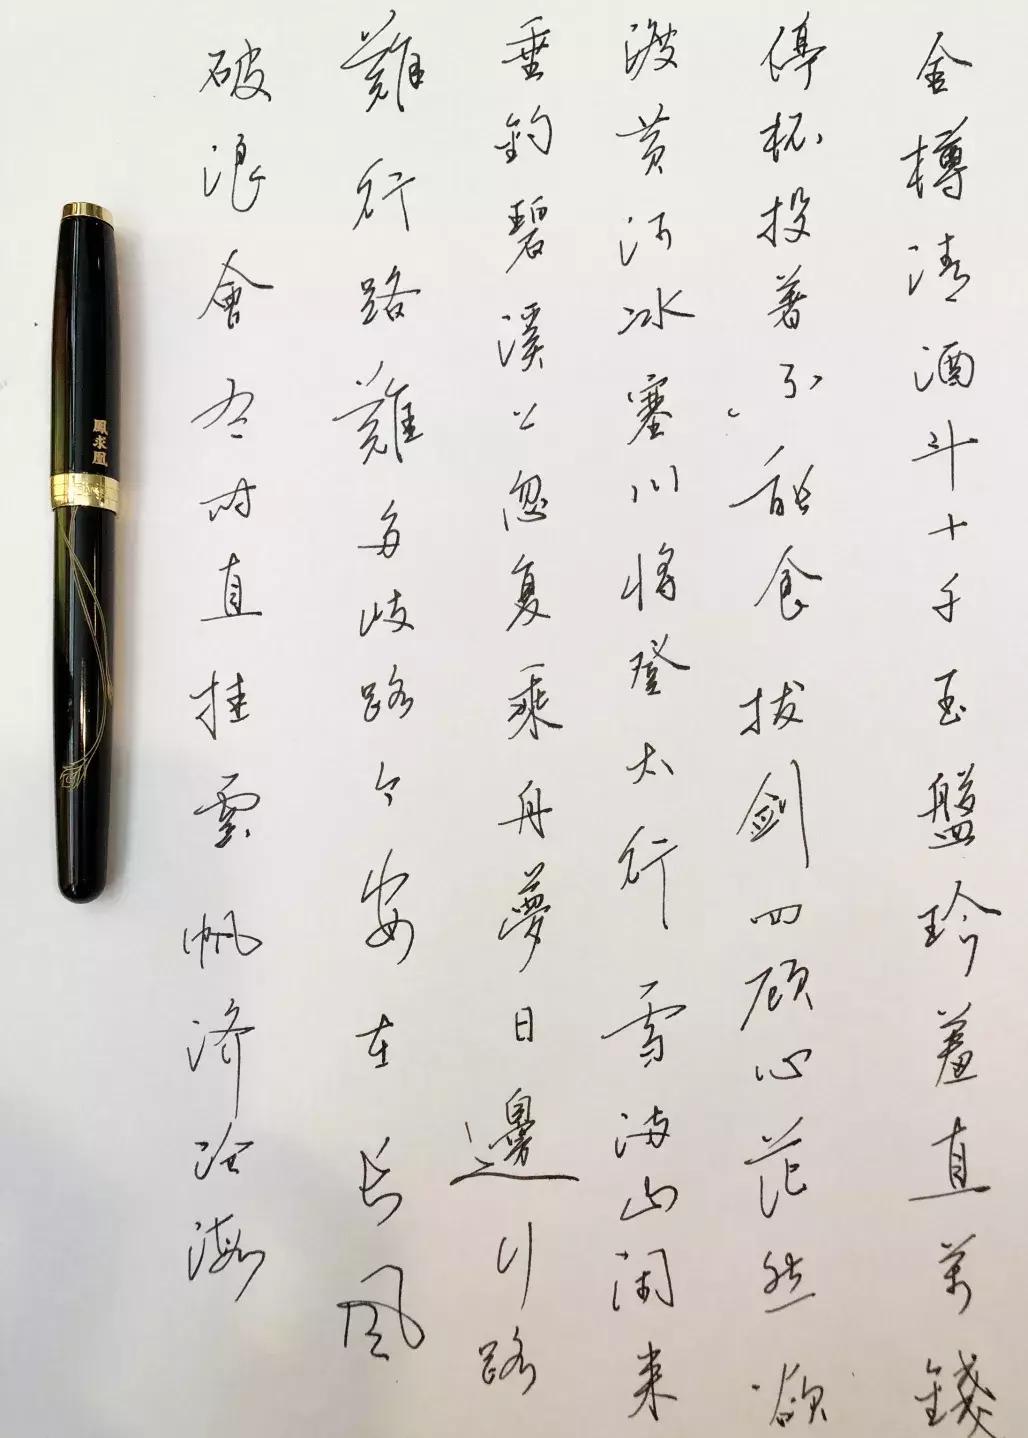 金樽清酒斗十千玉盤珍羞直萬錢
停杯投箸不能食拔劍四顾心茫然欲
渡黄河冰塞川将登太行雪满山闲来
垂釣碧溪上忽复乘舟夢日邊行路
難行路難多歧路今安在长风
破浪會有时直挂雲帆济沧海
鳳求凰